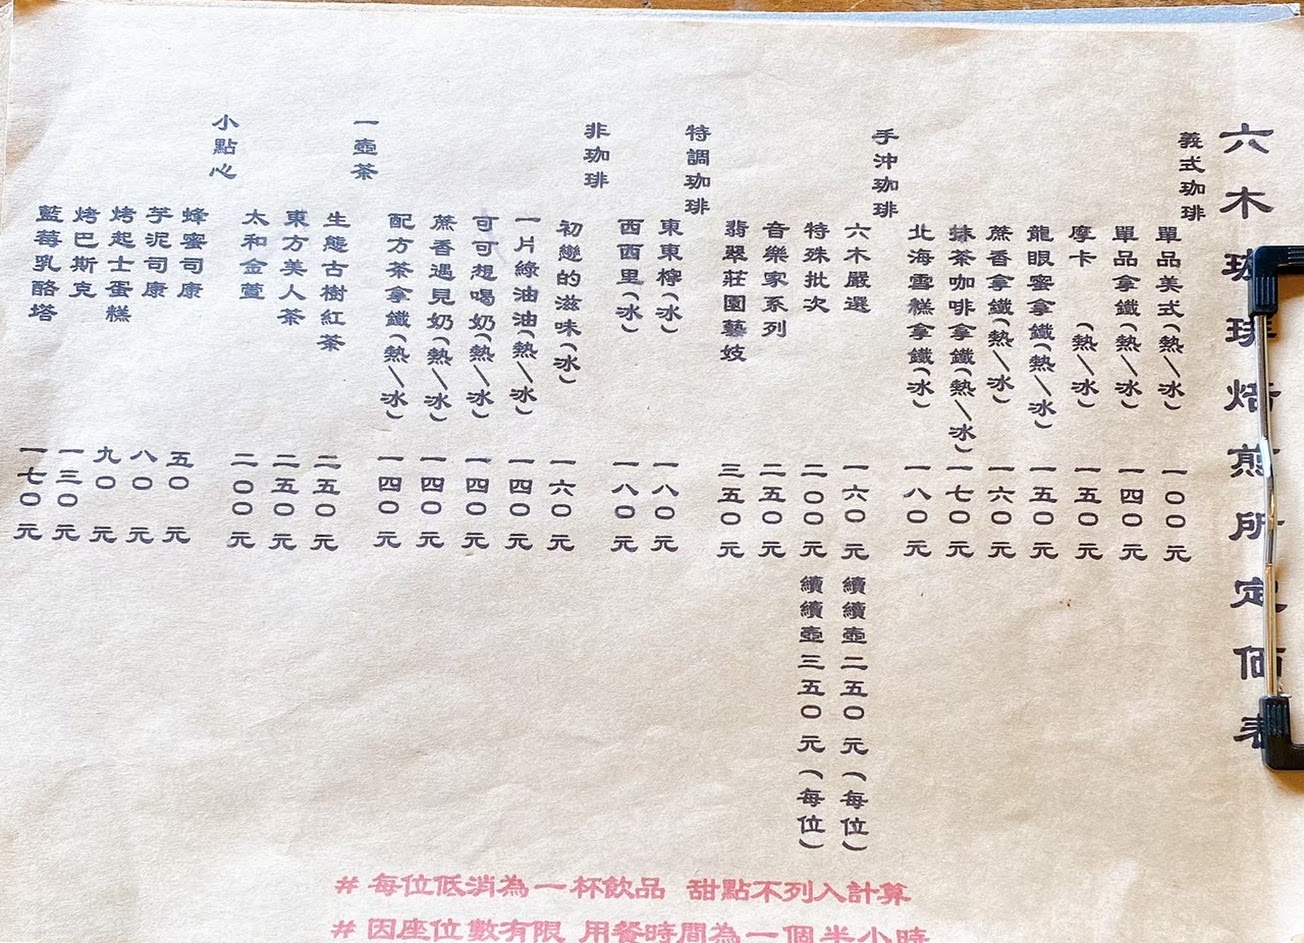 六木珈琲焙煎所定価表
義式珈琲
單品美式(熱/冰) 一〇〇元
單品拿鐵(熱/冰) 一四〇元
摩卡 (熱/冰) 一五〇元
龍眼蜜拿鐵(熱/冰) 一五〇元
蔗香拿鐵(熱/冰) 一六〇元
抹茶咖啡拿鐵(熱/冰) 一七〇元
北海雪糕拿鐵(冰) 一八〇元
手沖珈琲
六木嚴選 一六〇元 續續壺二五〇元(每位)
特殊批次 二〇〇元 續續壺三五〇元(每位)
音樂家系列 二五〇元
翡翠莊園藝妓 三五〇元
特調珈琲
東東檸(冰) 一八〇元
西西里(冰) 一八〇元
非珈琲
初戀的滋味(冰) 一六〇元
一片綠油油(熱/冰) 一四〇元
可可想喝奶(熱/冰) 一四〇元
蔗香遇見奶(熱/冰) 一四〇元
配方茶拿鐵(熱/冰) 一四〇元
一壺茶
生態古樹紅茶 二五〇元
東方美人茶 二五〇元
太和金萱 二〇〇元
小點心
蜂蜜司康 五〇元
芋泥司康 八〇元
烤起士蛋糕 九〇元
烤巴斯克 一三〇元
藍莓乳酪塔 一七〇元
#每位低消為一杯飲品 甜點不列入計算
#因座位數有限 用餐時間為一個半小時